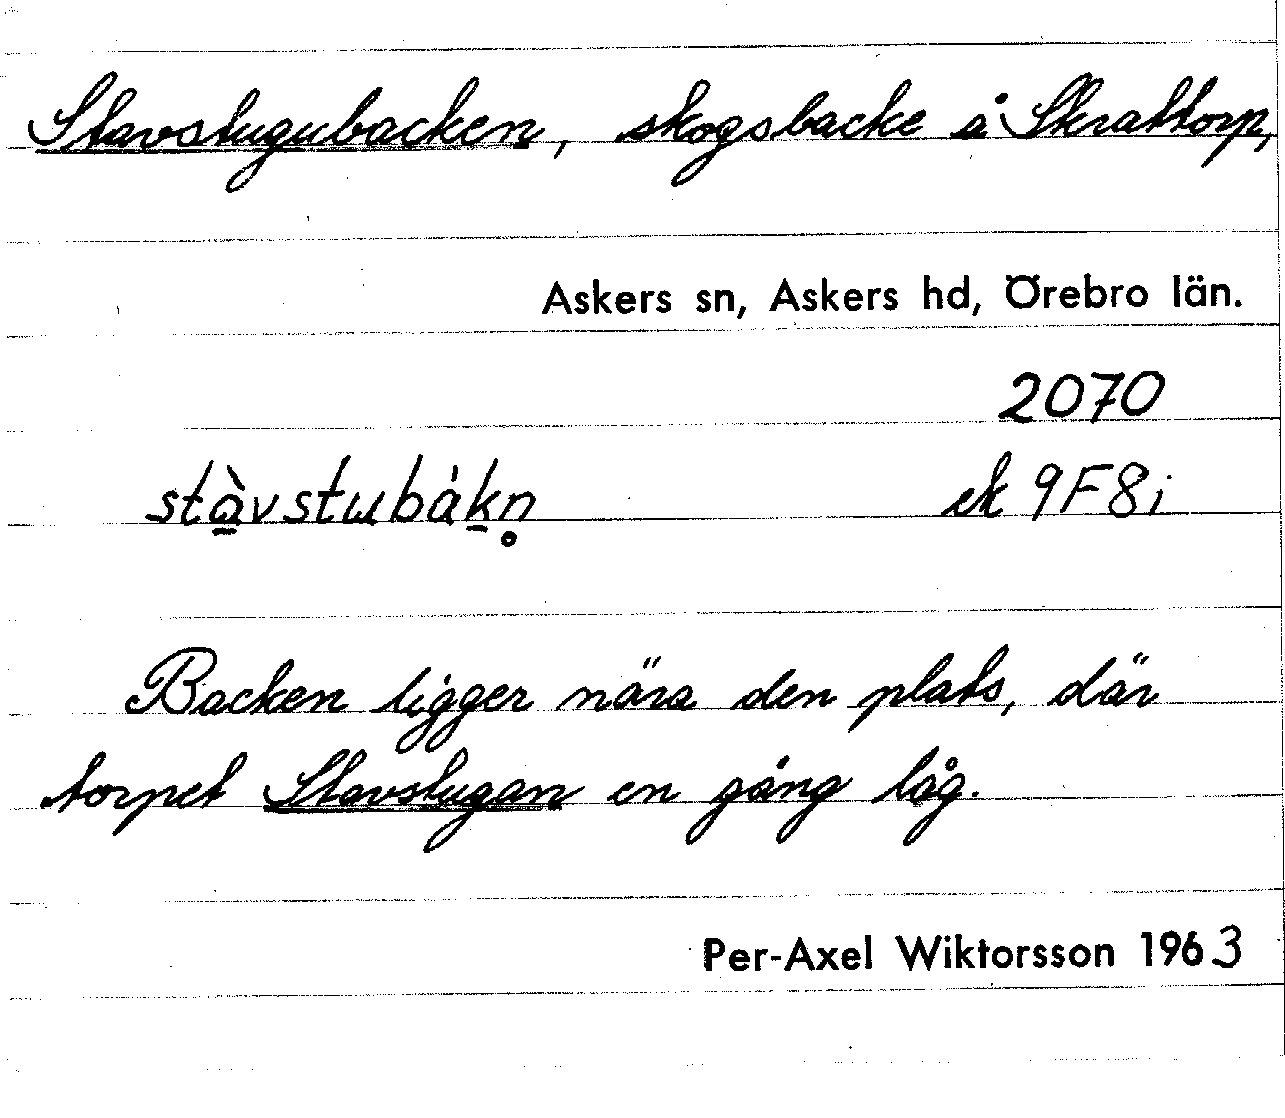 Stavstugubacken, skogsbacke å Skrattorp,
Askers sn, Askers hd, Örebro län.
2070
stàvstubákn̥ ek 9F8i
Backen ligger nära den plats, där
torpet Stavstugan en gång låg.
Per-Axel Wiktorsson 1963